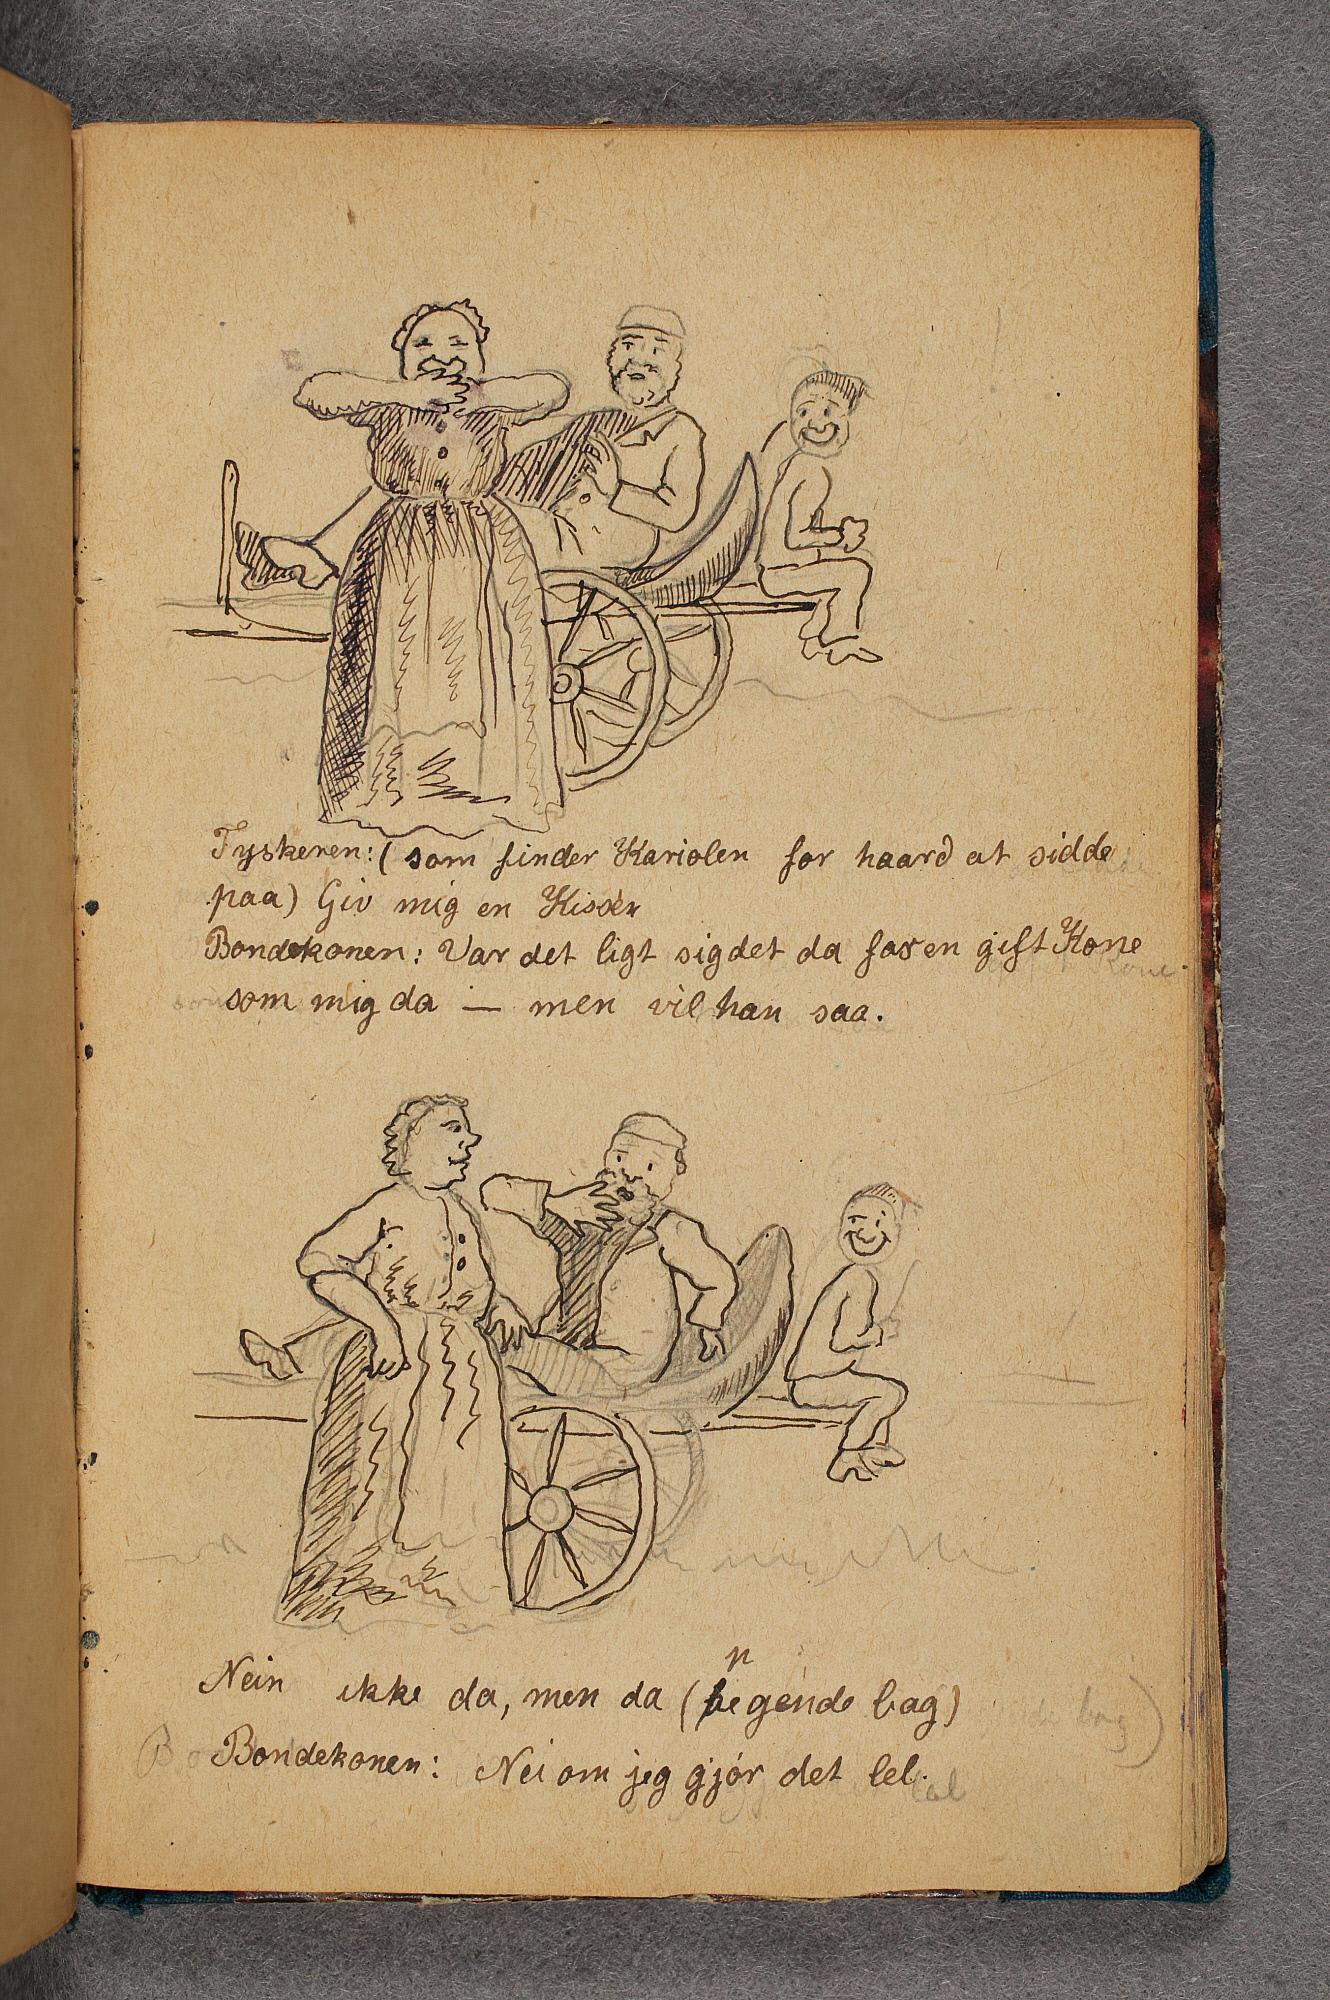 Tyskeren: (som finder Kariolen for haard at sidde
paa) Giv mig en Kissen
Bondekonen: Var det ligt sig det da for en gift Kone
som mig da — men vil han saa.
Nein ikke da, men da (pegende bag)
Bondekonen: Nei om jeg gjør det lel.